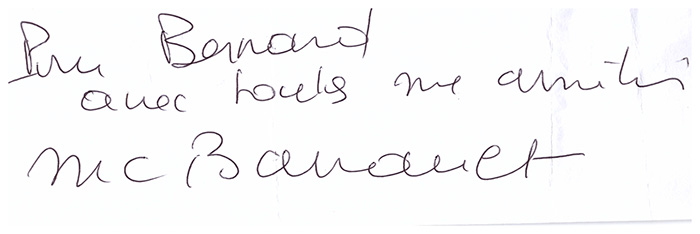 Pour Bernard
avec toutes mes amitiés
MC